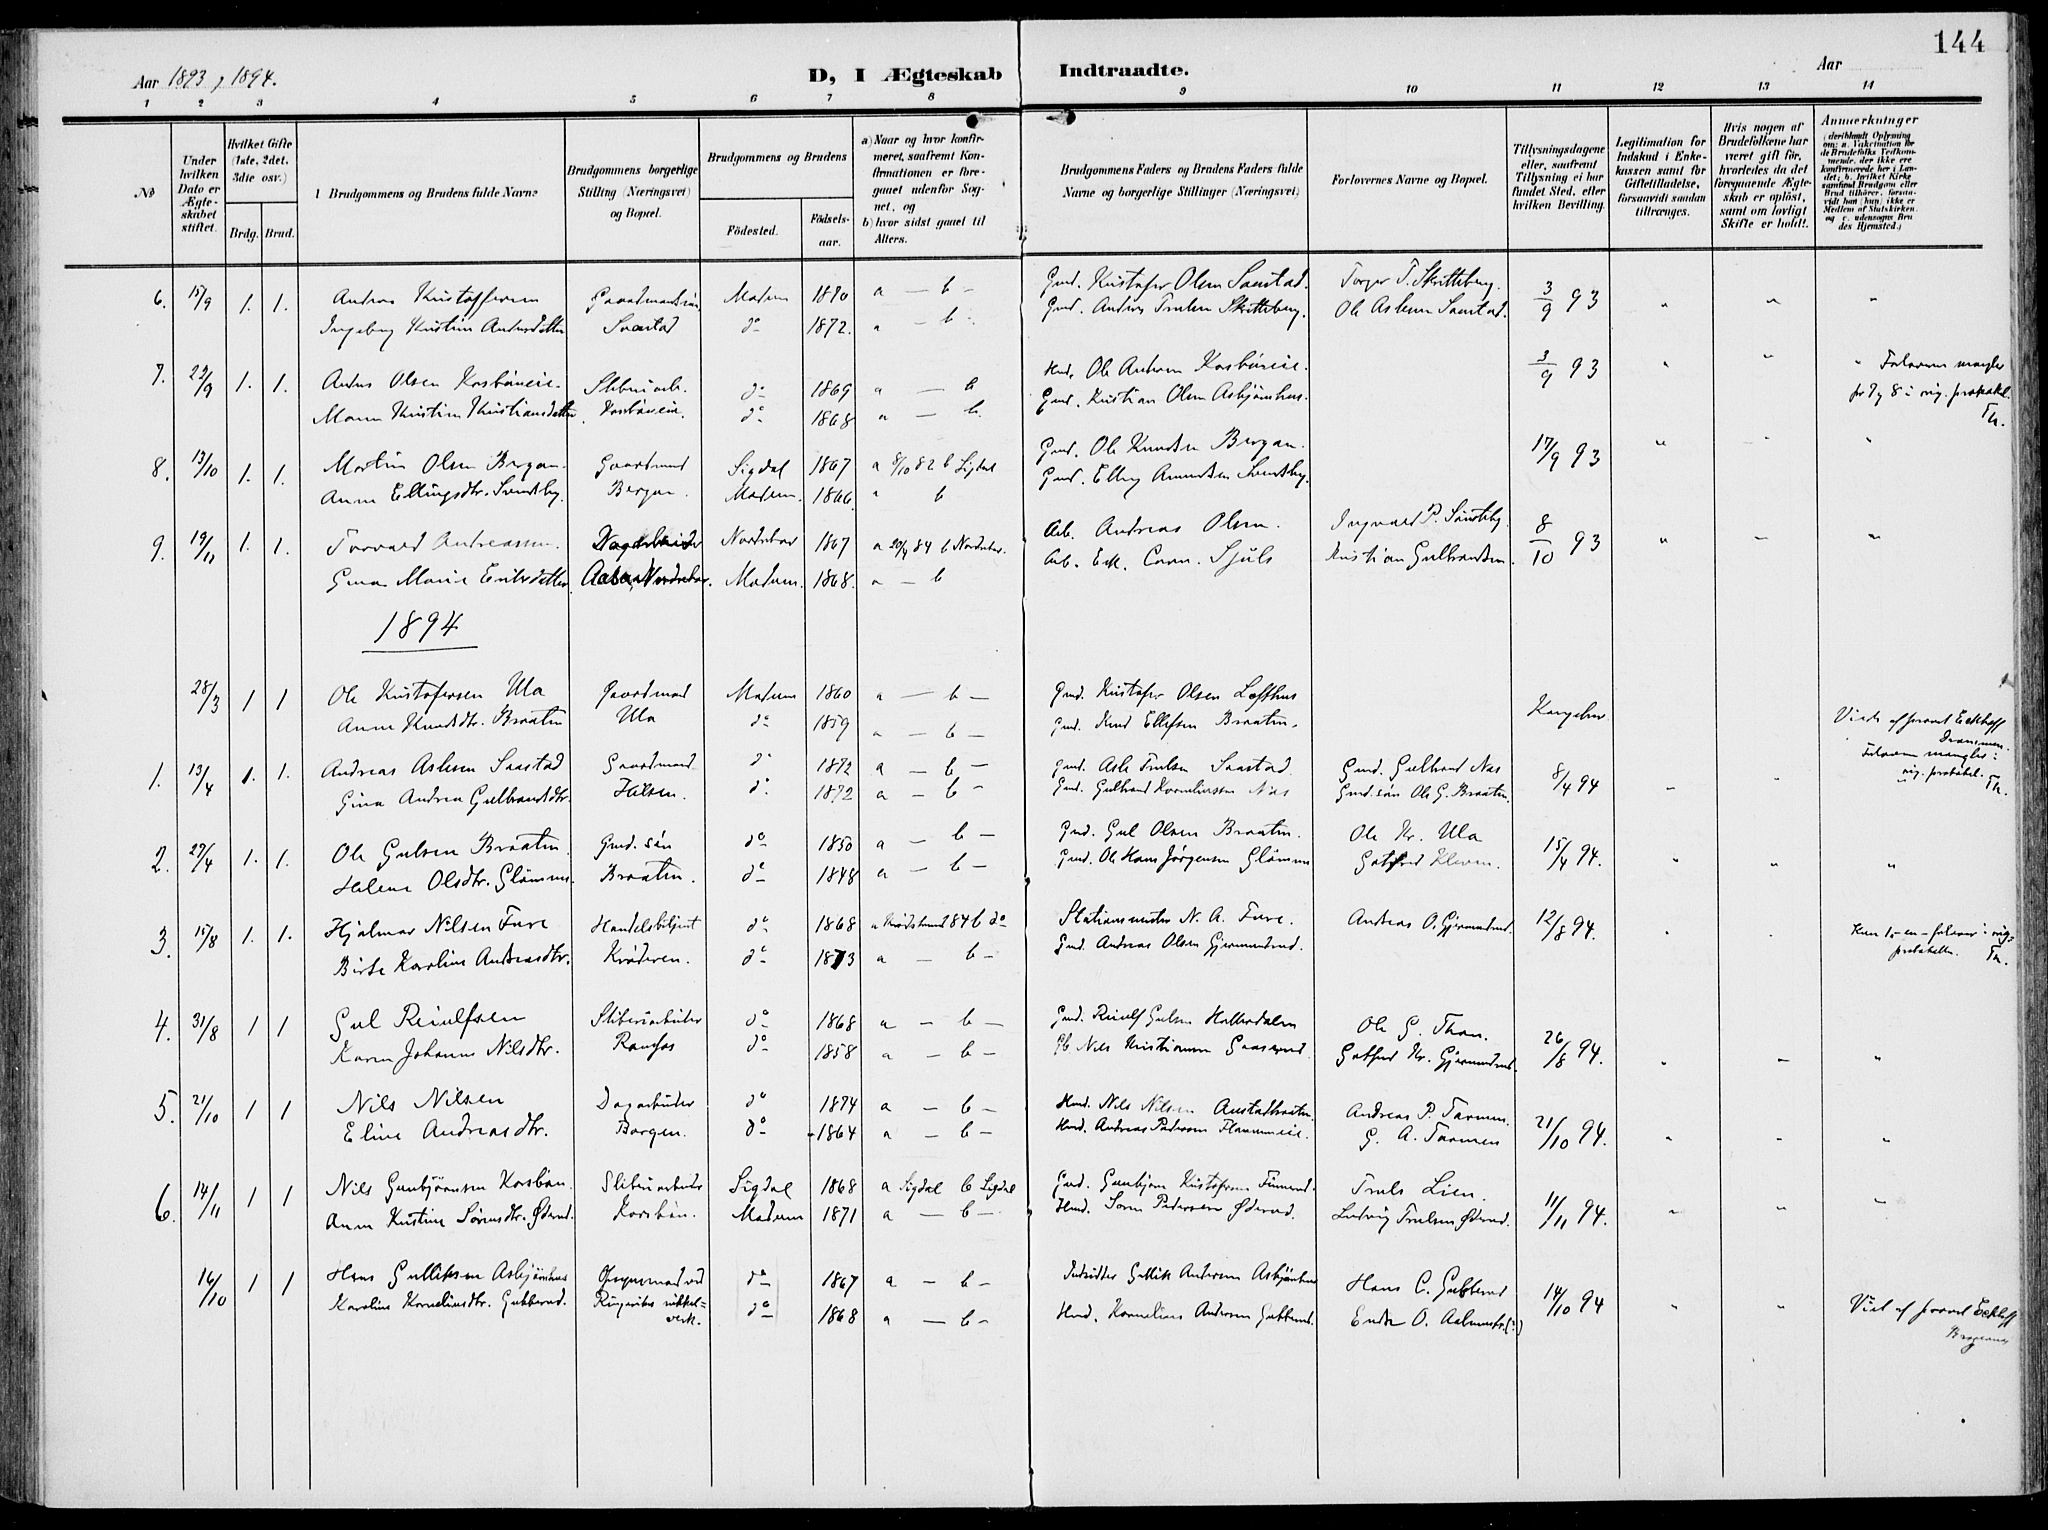 144
Aar 1893, 1894.
D, I Ægteskab Indtraadte.
Aar
1 2 3 4 5 6 7 8 9 10 11 12 13 14
No
Under hvilken Dato er Ægteskabet stiftet.
Hvilket Gifte (1ste, 2det, 3die osv.)
Brdg. Brud.
Brudgommens og Brudens fulde Navne
Brudgommens borgerlige Stilling (Næringsvei) og Bopæl.
Brudgommens og Brudens
Fødested. Fødselsaar.
a) Naar og hvor konfirmeret, saafremt Konfirmationen er foregaaet udenfor Sognet, og
b) hvor sidst gaaet til Alters.
Brudgommens Faders og Brudens Faders fulde Navne og borgerlige Stillinger (Næringsvei)
Forlovernes Navne og Bopæl.
Tillysningsdagene eller, saafremt Tillysning ei har fundet Sted, efter hvilken Bevilling.
Legitimation for Indskud i Enkekassen samt for Giftetilladelse, forsaavidt saadan tiltrænges.
Hvis nogen af Brudefolkene har været gift før, hvorledes da det foregaaende Ægteskab er opløst, samt om lovligt Skifte er holdt.
Anmerkninger
(deriblandt Oplysning om: a. Vakcination for de Brudefolks Vedkommende, der ikke ere konfirmerede her i Landet; b. hvilket Kirkesamfund Brudgom eller Brud tilhører, forsaavidt han (hun) ikke er Medlem af Statskirken, og c. udensogns Brudes Hjemsted.)
6. 15/9 1. 1. Andreas Kristoffersen Gaardmandssøn Modum 1870 a — b — Gmd. Kristofer Olsen Saastad. Torger T. Skritteberg. 3/9 93 " " "
Ingeborg Kristine Andersdatter Saastad do 1872. a — b — Gmd. Anders Trulsen Skritteberg. Ole Aslesen Saastad.
7. 29/9 1. 1. Anders Olsen Korsbøneie. Sliberiarb. do 1869 a — b Hmd. Ole Andersen Korsbøneie. 3/9 93 " " " Forlovere mangler
Maren Kristine Kristiansdatter Korsbøneie. do 1868 a — b. Gmd. Kristian Olsen Asbjørnhus. for 7 og 8 i orig. protokol. Th.
8. 13/10 1. 1. Martin Olsen Bergan. Gaardmand Sigdal 1867 a 8/10 82 b Sigdal Gmd. Ole Knudsen Bergan. 17/9 93 " " "
Anne Ellingsdtr. Svendsby. Bergan. Modum. 1866 " b Gmd. Elling Amundsen Svendsby.
9. 19/11 1. 1. Torvald Andreassen. Dagarbeider Nordrehov 1867 a 20/4 84 b Nordrehov. Arb. Andreas Olsen. Ingvald P. 8/10 93 " " "
Gina Marie Eriksdatter Nordrehov. Modum. 1868. a — b Arb. Erik Kristian Gulbrandsen.
1894
28/3 1 1 Ole Kristofersen Ula Gaardmand Modum 1860 a — b — Gmd. Kristofer Olsen Lofthus Kongebrev
Anne Knudsdtr. Braaten Ula do 1859 a — b — Gmd. Knud Ellefsen Braaten. Viede af provst Eckhoff Drammen.
1. 13/4 1. 1. Andreas Aslesen Saastad Gaardmand do 1872 a — b — Gmd. Asle Trulsen Saastad. Gmd. Gulbrand Næs 8/4 94 " " Forlovere mangler i orig. protokol. Th.
Gina Andrea Gulbrandsdtr. do 1872 a — b — Gmd. Gulbrand Korneliussen Næs Gmd. søn Ole G. Braaten.
2. 27/4 1. 1. Ole Gulsen Braaten. Gmd. søn do 1850 a — b — Gmd. Gul Olsen Braaten. Ole Kr. Ula 15/4 94. " " "
Helene Olsdtr. Glømme. Braaten. do 1848 a — b — Gmd. Ole Hans Jørgensen Glømme Gotfred Kleven.
3. 15/8 1. 1. Hjalmar Nilsen Fure Handelsbetjent do 1868 a Krødsherred 84 b do Stationsmester N. A. Fure. Andreas O. Gjermundrud. 12/8 94. " " Kun 1 - en - forlover i orig.
Birte Karoline Andreasdtr. Krøderen. do 1873 a — b — Gmd. Andreas Olsen Gjermundrud. protokollen. Th.
4. 31/8 1 1 Gul Reiulfsen Sliberiarbeider do 1868 a — b — Gmd. Reiulf Gulsen Ole G. Thon. 26/8 94. " " "
Karen Johanne Nilsdtr. Ramfos do 1858 a — b — Nils Kristiansen Gotfred Kr. Gjermundrud.
5. 21/10 1 1 Nils Nilsen Dagarbeider do 1874 a — b — Hmd. Nils Nilsen Andreas P. Tormen. 21/10 94. " " "
Eline Andreasdtr. Borgen. do 1864 a — b — Hmd. Andreas Pedersen G. A. Tormen
6. 14/11 1 1 Nils Gunbjørnsen Korsbøn. Sliberiarbeider Sigdal 1868 a Sigdal b Sigdal Gmd. Gunbjørn Kristofersen Truls Lien. 11/11 94. " " "
Anne Kristine Sørensdtr. Øderud. Korsbøn. Modum 1871 a — b — Hmd. Søren Pedersen Øderud. Ludvig Trulsen Øderud.
16/10 1 1 Hans Gulliksen Asbjørnhus Opsynsmand ved do 1867 a — b — Gullik Andersen Asbjørnhus Hans C. Gubberud 14/10 94 " "
Karoline Korneliusdtr. Gubberud. Ringerikes nikkelverk. do 1868 a — b — Hmd. Kornelius Andersen Gubberud. Endre O. (?) Viet af provst Eckhoff Bragernes